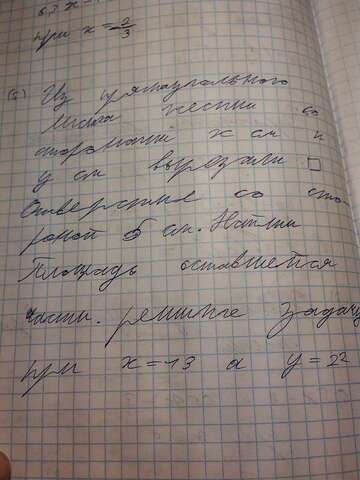 при x = -2/3
5) Из прямоугольного
листа жести со
сторонами x см и
y см вырезали □
отверстие со сто
роной 5 см. Найти
площадь оставшейся
части. решите задачу
при x = 13 а y = 22